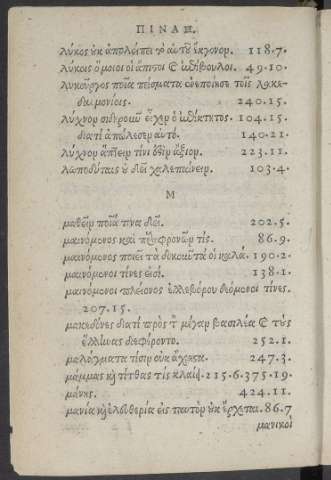 ΠΙΝΑΞ.
λύκος οὐκ ἀπολείπει τὸ αὐτοῦ ἔκγονον. 118.7.
λύκοις ὅμοιοι οἱ ἄπιστοι καὶ ἐπίβουλοι. 49.10.
λυκοῦργος ποῖα πείσματα ἐνεποίησε τοῖς λακε-
δαιμονίοις. 240.15.
λύχνον σιδηροῦν εἶχεν ὁ ἐπίκτητος. 104.15.
διατί ἀπώλεσεν αὐτό. 140.21.
λύχνον ἅπτειν τίνι ἐστὶν ἄξιον. 223.11.
λωποδύταις οὐ δεῖ χαλεπαίνειν. 103.4.
Μ
μαθεῖν ποῖα τινα δεῖ. 202.5.
μαινόμενος καὶ παραφρονῶν τίς. 86.9.
μαινόμενος ποιεῖ τὰ δοκοῦντα οἱ καλά. 190.2.
μαινόμενοι τίνες εἰσί. 138.1.
μαινόμενοι πλείονος ἑλλεβόρου δεόμενοι τίνες.
207.15.
μακεδόνες διατί πρὸς τὸν μέγαν βασιλέα καὶ τοὺς
ἕλληνας διεφέροντο. 252.1.
μαλάγματα τίσιν οὐκ 247.3.
μάμμας καὶ τίτθας τίς κλαίει. 215.6.375.19.
μάνης. 424.11.
μανία καὶ ἐλευθερία εἰς ταυτὸν οὐκ ἔρχεται. 86.7
μανικοὶ